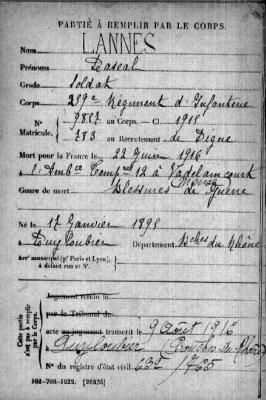 PARTIE À REMPLIR PAR LE CORPS.
Nom LANNES
Prénoms Pascal
Grade Soldat
Corps 289e Régiment d'Infanterie
N° 9887 au Corps. — Cl. 1915
Matricule. 283 au Recrutement de Digne
Mort pour la France le 22 Juin 1916
à l'Ambce Tempre 12 à Vadelaincourt
Meuse
Genre de mort Blessures de Guerre
Né le 17 Janvier 1895
à Puyloubier Département Bches du Rhône
Arrt municipal (pr Paris et Lyon),
à défaut rue et N°.
Cette partie n'est pas à remplir par le Corps.
Jugement rendu le
par le Tribunal de
acte ou jugement transcrit le 9 Août 1916
à Puyloubier (Bouches-du-Rhône)
N° du registre d'état civil